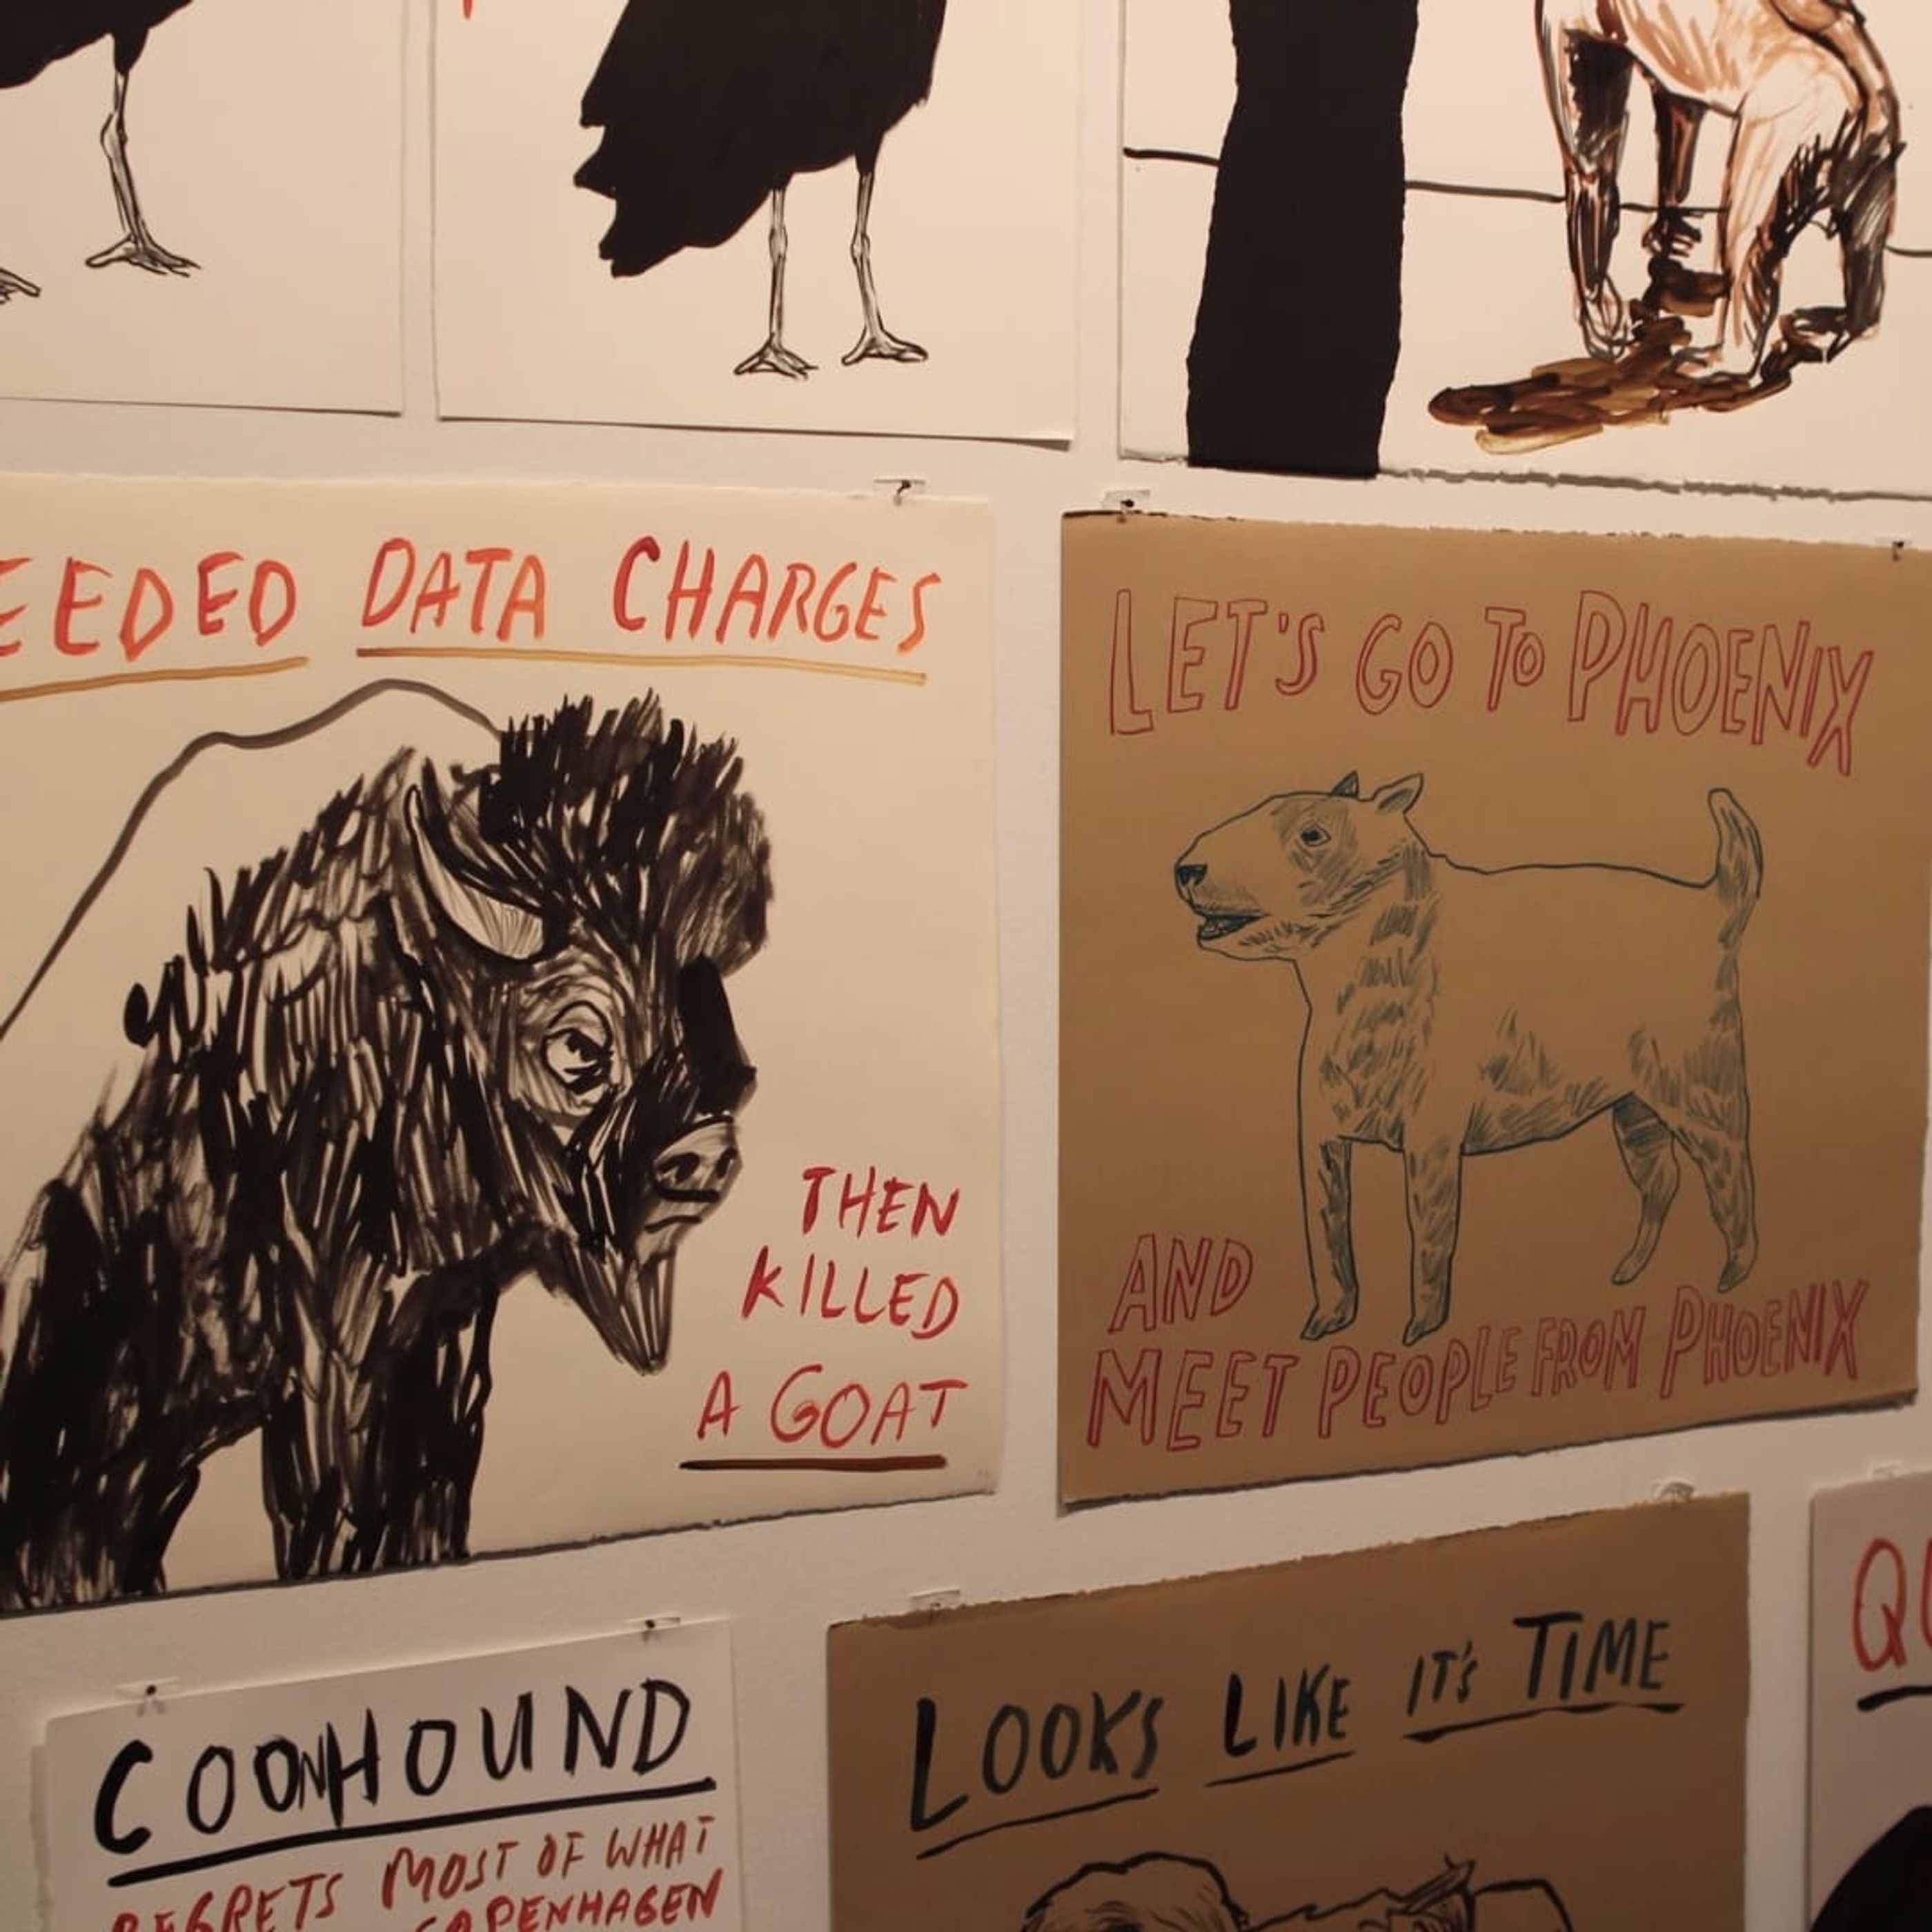 DATA CHARGES
THEN
KILLED
A GOAT
LET'S GO TO PHOENIX
AND
MEET PEOPLE FROM PHOENIX
COONHOUND
REGRETS MOST OF WHAT
COPENHAGEN
LOOKS LIKE IT'S TIME